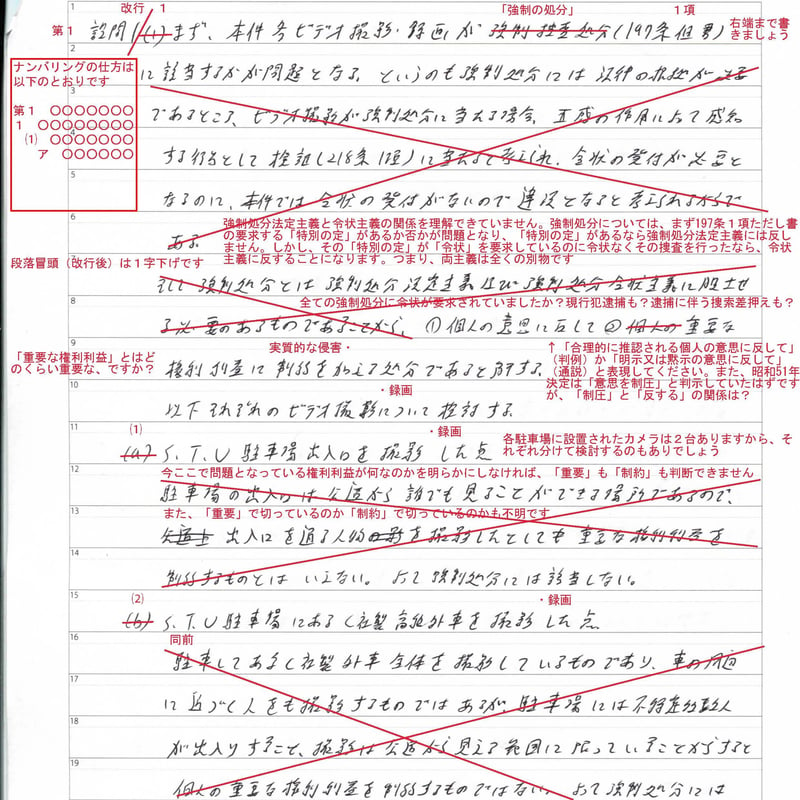 改行 1 「強制の処分」 1項
第1 設問1(1)まず、本件各ビデオ撮影・録画が強制捜査処分(197条但書) 右端まで書きましょう
ナンバリングの仕方は
以下のとおりです
第1 ○○○○○○○
1 ○○○○○○○
(1) ○○○○○○
ア ○○○○○○
に該当するかが問題となる。というのも強制処分には法律の根拠が必要
であるところ、ビデオ撮影が強制処分に当たる場合、五感の作用によって感知
する行為として検証(218条1項)に当たると考えられ、令状の発付が必要と
なるのに、本件では令状の発付がないので違法となると考えられるからで
ある。
強制処分法定主義と令状主義の関係を理解できていません。強制処分については、まず197条1項ただし書
の要求する「特別の定」があるか否かが問題となり、「特別の定」があるなら強制処分法定主義には反し
ません。しかし、その「特別の定」が「令状」を要求しているのに令状なくその捜査を行ったなら、令状
主義に反することになります。つまり、両主義は全くの別物です
段落冒頭(改行後)は1字下げです
そして強制処分とは強制処分法定主義及び強制処分令状主義に服させ
全ての強制処分に令状が要求されていましたか?現行犯逮捕も?逮捕に伴う捜索差押えも?
る必要のあるものであることから、①個人の意思に反して②個人の重要な
「重要な権利利益」とはど
のくらい重要な、ですか?
実質的な侵害・
↑「合理的に推認される個人の意思に反して」
(判例)か「明示又は黙示の意思に反して」
(通説)と表現してください。また、昭和51年
決定は「意思を制圧」と判示していたはずです
が、「制圧」と「反する」の関係は?
権利利益に制約を加える処分であると解する。
・録画
以下それぞれのビデオ撮影について検討する。
(1) ・録画
(a) S.T.U駐車場出入口を撮影した点
各駐車場に設置されたカメラは2台ありますから、そ
れぞれ分けて検討するのもありでしょう
今ここで問題となっている権利利益が何なのかを明らかにしなければ、「重要」も「制約」も判断できません
駐車場の出入口は公道から誰でも見ることができる場所であるので、
また、「重要」で切っているのか「制約」で切っているのかも不明です
公道上 出入口を通る人物の影を撮影したとしても重要な権利利益を
制約するものとはいえない。よって強制処分には該当しない。
(2) ・録画
(b) S.T.U駐車場にあるC社製高級外車を撮影した点
同前
駐車してあるC社製外車全体を撮影しているものであり、車の周辺
に近づく人をも撮影するものではあるが、駐車場には不特定多数人
が出入りすること、撮影は公道から見える範囲に限っていることからすると
個人の重要な権利利益を制約するものではない。よって強制処分には
1
2
3
4
5
6
7
8
9
10
11
12
13
14
15
16
17
18
19